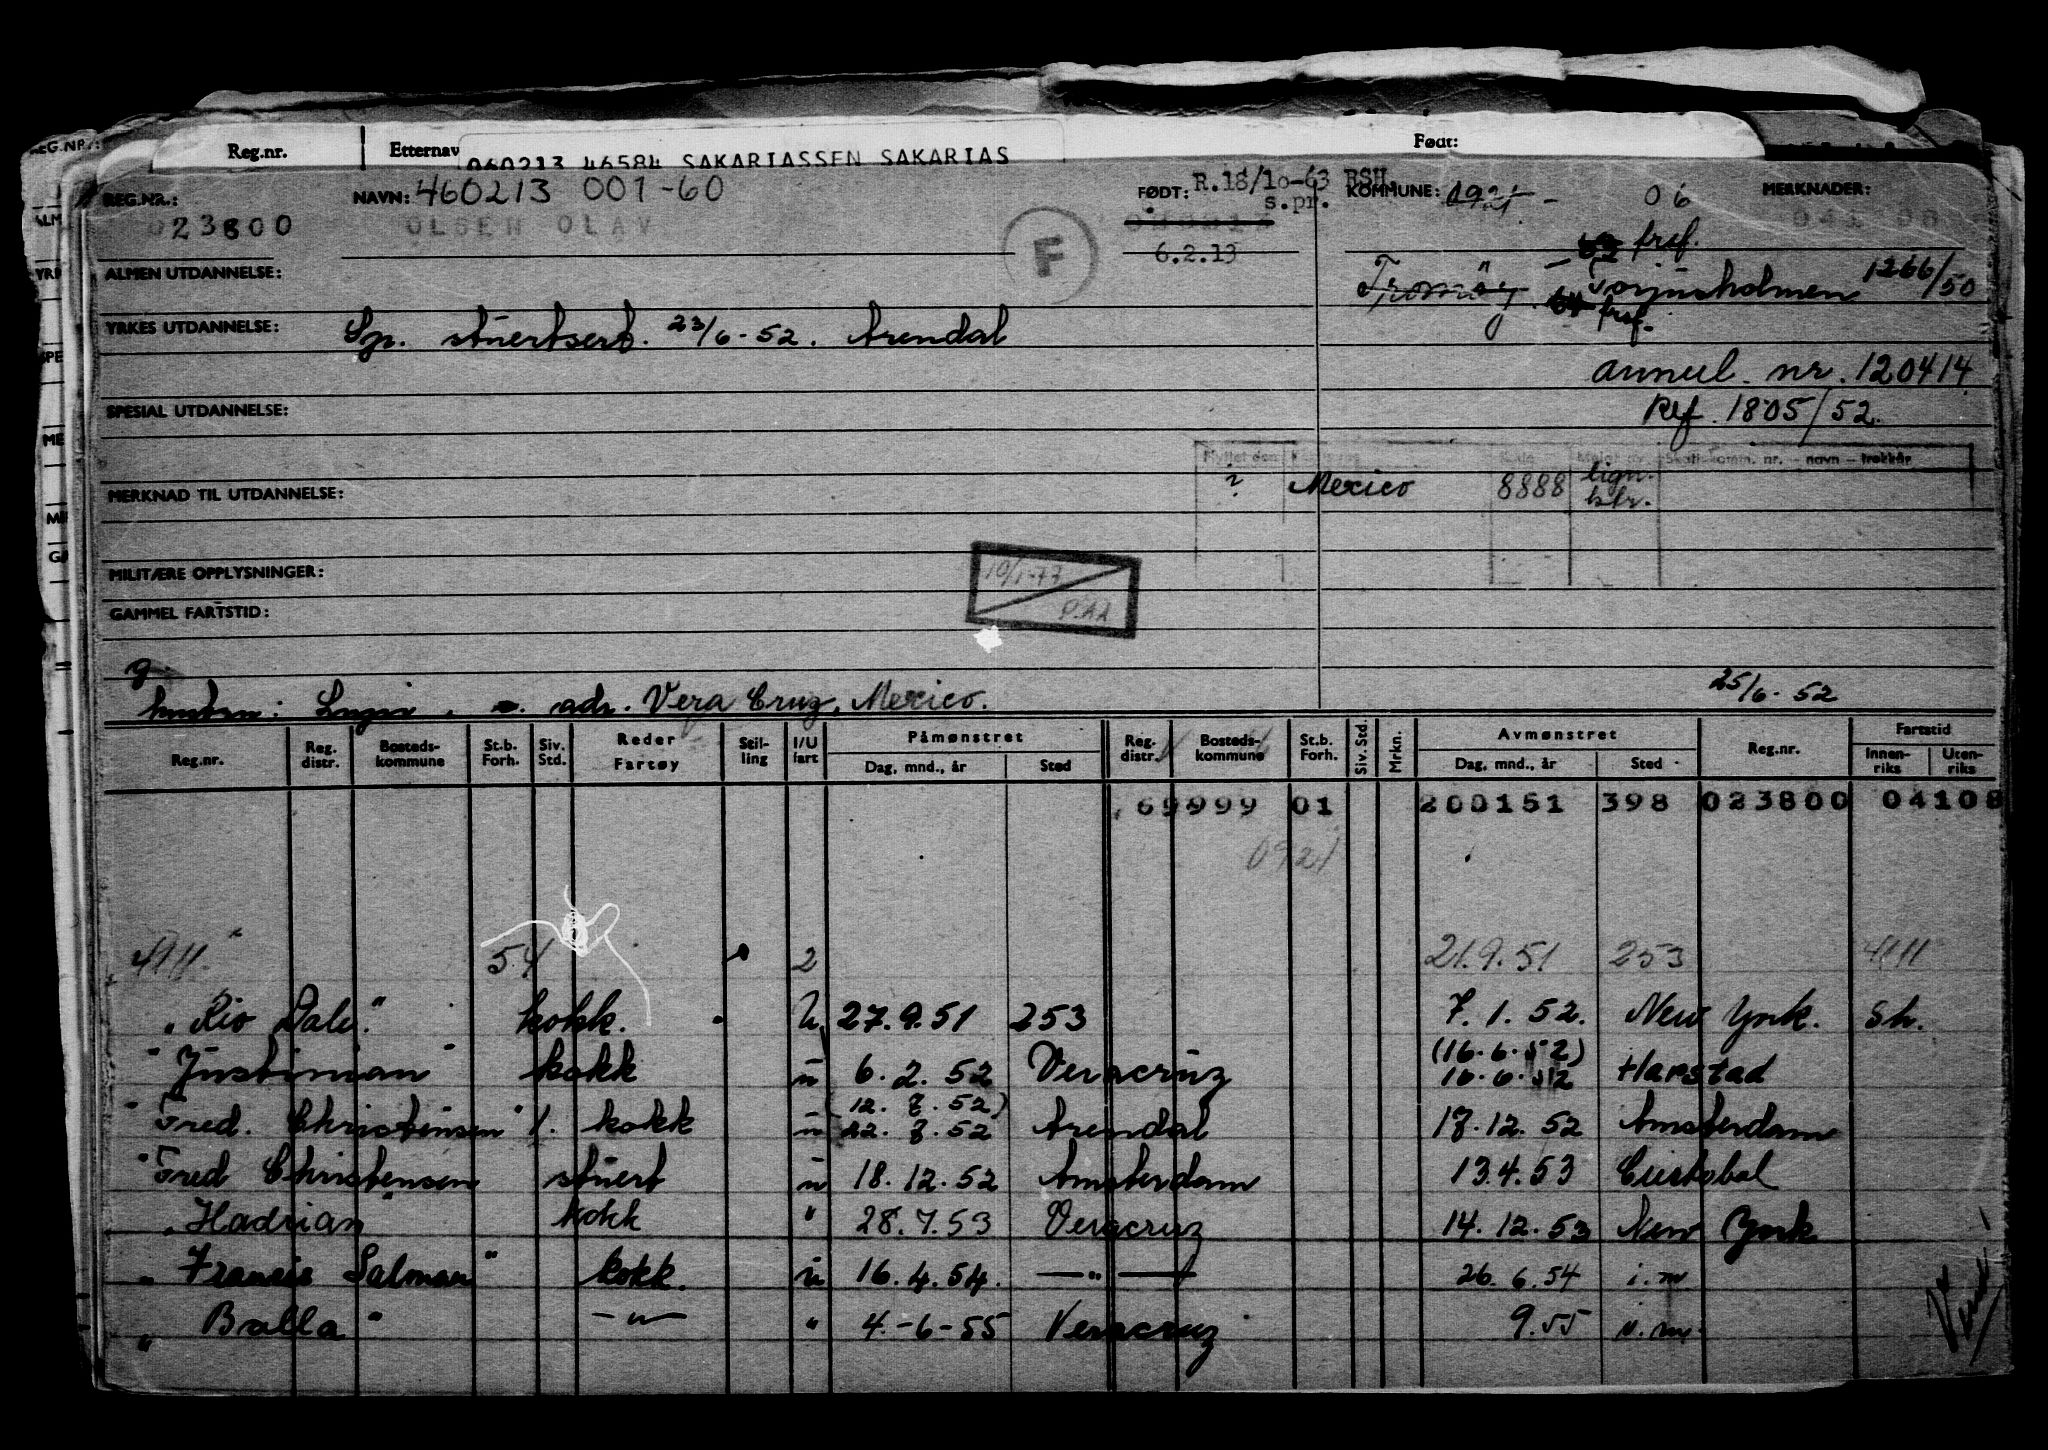 REG.NR.:
Reg.nr.
Etternav
Født:
060213 46584 SAKARIASSEN SAKARIAS
REG.NR.:
023800
NAVN: 460213 001-60
OLSEN OLAV
F
FØDT: R.18/10-63 RSH.
s.pr.
6.2.13
KOMMUNE: 0921 - 06
MERKNADER:
frsf.
ALMEN UTDANNELSE:
Tromøy - Torjusholmen 1266/50
frsf.
YRKES UTDANNELSE: Sp. stuertsert. 23/6-52. Arendal
annul. nr. 120414
SPESIAL UTDANNELSE:
Ref. 1805/52.
Flyttet den
Skattekomm. nr. - navn - trekkår
? Mexico 8888 lign.
MERKNAD TIL UTDANNELSE:
MILITÆRE OPPLYSNINGER:
19/1-77
GAMMEL FARTSTID:
g.
adr. Vera Cruz, Mexico.
25/6-52
Reg.nr.
Reg. distr.
Bosteds-kommune
St.b. Forh.
Siv. Std.
Reder
Fartøy
Stil-ling
I/U fart
Påmønstret
Dag, mnd., år
Sted
Reg. distr.
Bosteds-kommune
St.b. Forh.
Siv. Std.
Mrkn.
Avmønstret
Dag, mnd., år
Sted
Reg.nr.
Fartstid
Innen-riks
Uten-riks
69999 01 200151 398 023800 04108
0921
4911 54 2 21.9.51 253 4911
"Rio Dale" kokk. U 27.9.51 253 7.1.52. New York. Sh.
(16.6.52)
"Justinian" kokk u 6.2.52 Veracruz 16.6.52 Harstad
(12.7.52)
"Fred. Christensen" 1. kokk u 12.7.52 Arendal 17.12.52 Amsterdam
"Fred Christensen stuert u 18.12.52 Amsterdam 13.4.53 Cristobal
"Hadrian" kokk " 28.7.53 Veracruz 14.12.53 New York
"Francis Salman" kokk. u 16.4.54. —"— 26.6.54 i.m
"Balla" —"— " 4.-6-55 Veracruz 9.55 i.m.